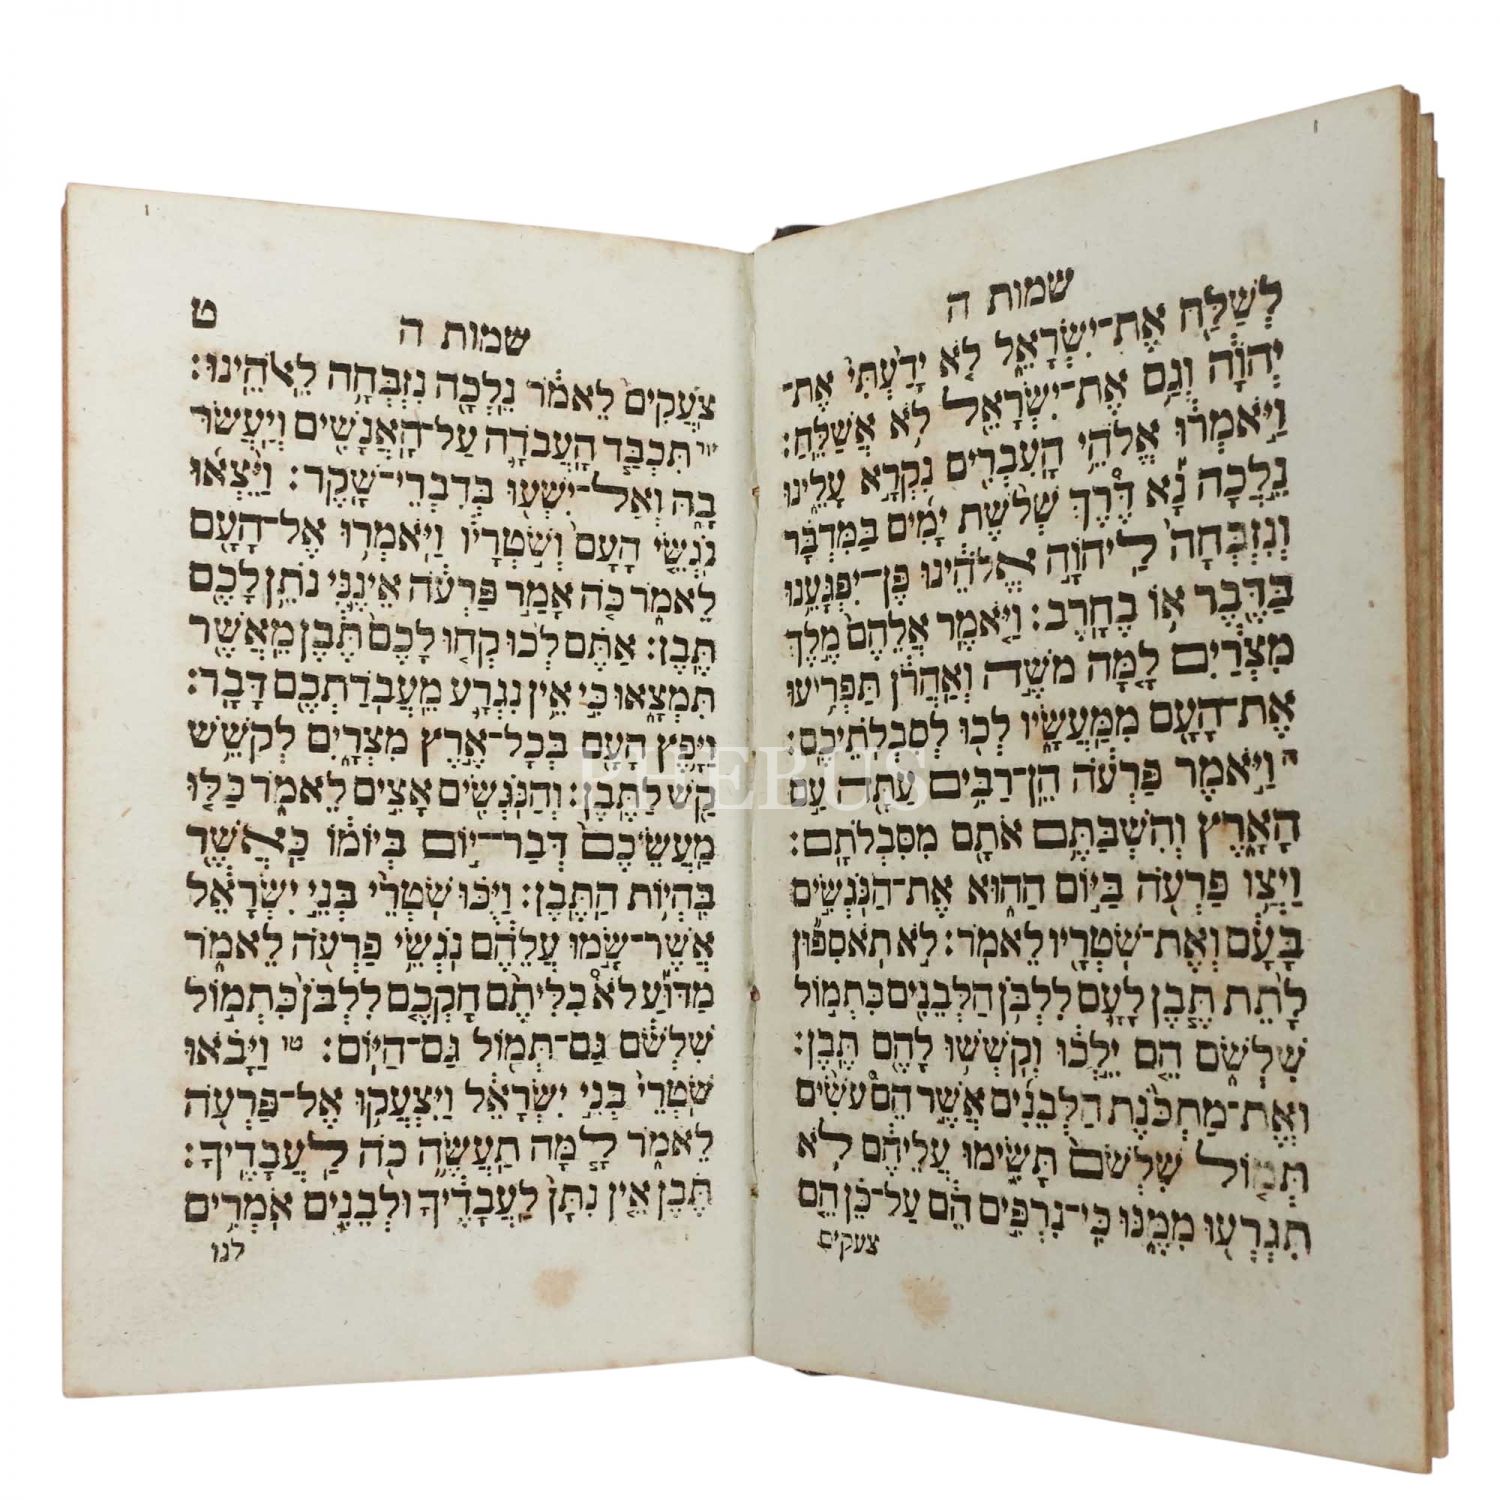 שמות ה
לְשַׁלַּ֖ח אֶת־יִשְׂרָאֵ֑ל לֹ֤א יָדַ֙עְתִּי֙ אֶת־
יְהוָ֔ה וְגַ֥ם אֶת־יִשְׂרָאֵ֖ל לֹ֥א אֲשַׁלֵּֽחַ׃
וַיֹּ֣אמְר֔וּ אֱלֹהֵ֥י הָעִבְרִ֖ים נִקְרָ֣א עָלֵ֑ינוּ
נֵ֣לֲכָה נָּ֡א דֶּרֶךְ֩ שְׁלֹ֨שֶׁת יָמִ֜ים בַּמִּדְבָּ֗ר
וְנִזְבְּחָה֙ לַֽיהוָ֣ה אֱלֹהֵ֔ינוּ פֶּ֨ן־יִפְגָּעֵ֔נוּ
בַּדֶּ֖בֶר א֥וֹ בֶחָֽרֶב׃ וַיֹּ֤אמֶר אֲלֵהֶם֙ מֶ֣לֶךְ
מִצְרַ֔יִם לָ֚מָּה מֹשֶׁ֣ה וְאַהֲרֹ֔ן תַּפְרִ֥יעוּ
אֶת־הָעָ֖ם מִמַּֽעֲשָׂ֑יו לְכ֖וּ לְסִבְלֹתֵיכֶֽם׃
ה וַיֹּ֣אמֶר פַּרְעֹ֔ה הֵן־רַבִּ֥ים עַתָּ֖ה עַ֣ם
הָאָ֑רֶץ וְהִשְׁבַּתֶּ֥ם אֹתָ֖ם מִסִּבְלֹתָֽם׃
וַיְצַ֥ו פַּרְעֹ֖ה בַּיּ֣וֹם הַה֑וּא אֶת־הַנֹּֽגְשִׂ֣ים
בָּעָ֔ם וְאֶת־שֹֽׁטְרָ֖יו לֵאמֹֽר׃ לֹ֣א תֹֽאסִפ֞וּן
לָתֵ֨ת תֶּ֧בֶן לָעָ֛ם לִלְבֹּ֥ן הַלְּבֵנִ֖ים כִּתְמ֣וֹל
שִׁלְשֹׁ֑ם הֵ֚ם יֵֽלְכ֔וּ וְקֹֽשְׁשׁ֥וּ לָהֶ֖ם תֶּֽבֶן׃
וְאֶת־מַתְכֹּ֨נֶת הַלְּבֵנִ֜ים אֲשֶׁ֣ר הֵם֩ עֹשִׂ֨ים
תְּמ֤וֹל שִׁלְשֹׁם֙ תָּשִׂ֣ימוּ עֲלֵיהֶ֔ם לֹ֥א
תִגְרְע֖וּ מִמֶּ֑נּוּ כִּֽי־נִרְפִּ֣ים הֵ֔ם עַל־כֵּ֗ן הֵ֤ם
צעקים
ט
שמות ה
צֹֽעֲקִים֙ לֵאמֹ֔ר נֵֽלְכָ֖ה נִזְבְּחָ֥ה לֵֽאלֹהֵֽינוּ׃
תִּכְבַּ֧ד הָעֲבֹדָ֛ה עַל־הָאֲנָשִׁ֖ים וְיַעֲשׂוּ־
בָ֑הּ וְאַל־יִשְׁע֖וּ בְּדִבְרֵי־שָֽׁקֶר׃ וַיֵּ֨צְא֜וּ
נֹגְשֵׂ֤י הָעָם֙ וְשֹׁ֣טְרָ֔יו וַיֹּאמְר֥וּ אֶל־הָעָ֖ם
לֵאמֹ֑ר כֹּ֚ה אָמַ֣ר פַּרְעֹ֔ה אֵינֶ֛נִּי נֹתֵ֥ן לָכֶ֖ם
תֶּֽבֶן׃ אַתֶּ֗ם לְכ֨וּ קְח֤וּ לָכֶם֙ תֶּ֔בֶן מֵאֲשֶׁ֖ר
תִּמְצָ֑אוּ כִּ֣י אֵ֥ין נִגְרָ֛ע מֵעֲבֹדַתְכֶ֖ם דָּבָֽר׃
וַיָּ֥פֶץ הָעָ֖ם בְּכָל־אֶ֣רֶץ מִצְרָ֑יִם לְקֹשֵׁ֥שׁ
קַ֖שׁ לַתֶּֽבֶן׃ וְהַנֹּֽגְשִׂ֖ים אָצִ֣ים לֵאמֹ֑ר כַּלּ֤וּ
מַֽעֲשֵׂיכֶם֙ דְּבַר־י֣וֹם בְּיוֹמ֔וֹ כַּֽאֲשֶׁ֖ר
בִּֽהְי֥וֹת הַתֶּֽבֶן׃ וַיֻּכּ֗וּ שֹֽׁטְרֵי֙ בְּנֵ֣י יִשְׂרָאֵ֔ל
אֲשֶׁר־שָׂ֣מוּ עֲלֵהֶ֔ם נֹֽגְשֵׂ֥י פַרְעֹ֖ה לֵאמֹ֑ר
מַדּ֡וּעַ לֹא֩ כִלִּיתֶ֨ם חָקְכֶ֤ם לִלְבֹּן֙ כִּתְמ֣וֹל
שִׁלְשֹׁ֔ם גַּם־תְּמ֖וֹל גַּם־הַיּֽוֹם׃ טו וַיָּבֹ֗אוּ
שֹֽׁטְרֵי֙ בְּנֵ֣י יִשְׂרָאֵ֔ל וַיִּצְעֲק֥וּ אֶל־פַּרְעֹ֖ה
לֵאמֹ֑ר לָ֧מָּה תַעֲשֶׂ֦ה כֹ֖ה לַעֲבָדֶֽיךָ׃
תֶּ֗בֶן אֵ֤ין נִתָּן֙ לַעֲבָדֶ֔יךָ וּלְבֵנִ֛ים אֹמְרִ֥ים
לנו
PHEBUS